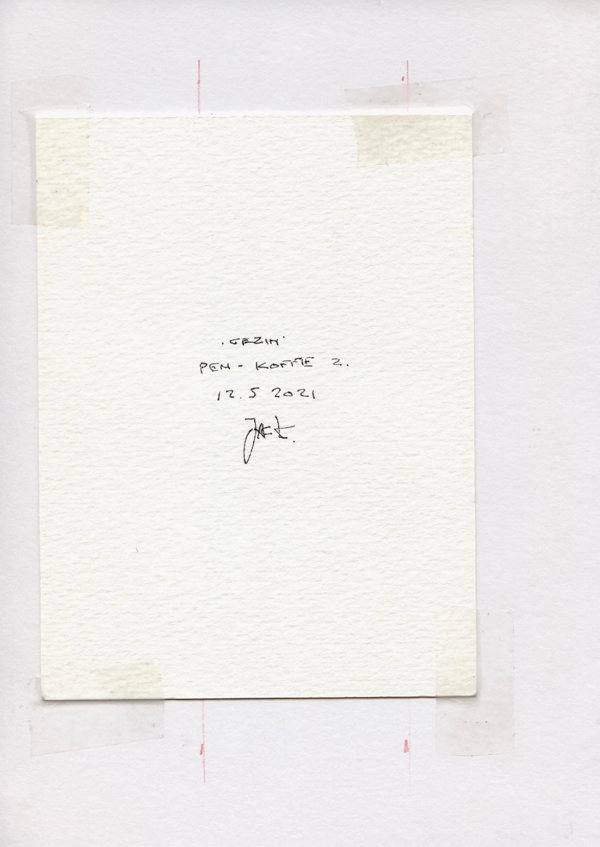 'GEZIN'
PEN - KOFFIE 2.
12.5 2021